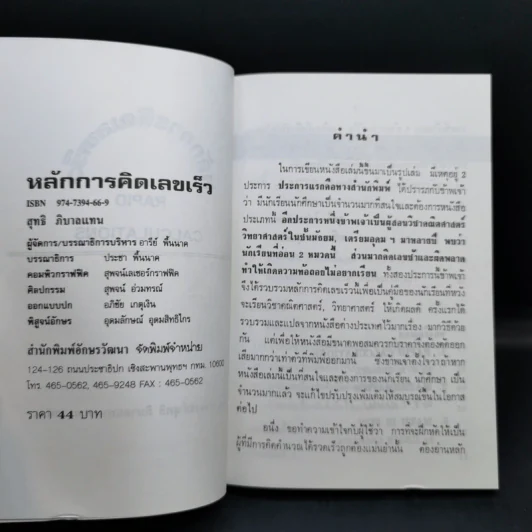 หลักการคิดเลขเร็ว
ISBN 974-7394-66-9
สุทธิ ภิบาลแทน
ผู้จัดการ/บรรณาธิการบริหาร อารีย์ พื้นนาค
บรรณาธิการ ประชา พื้นนาค
คอมพิวกราฟฟิค สุพจน์เลเซอร์กราฟฟิค
ศิลปกรรม สุพจน์ อ่วมทรณ์
ออกแบบปก อภิชัย เกตุเงิน
พิสูจน์อักษร อุดมลักษณ์ อุดมสิทธิไกร
สำนักพิมพ์อักษรวัฒนา จัดพิมพ์จำหน่าย
124-126 ถนนประชาธิปก เชิงสะพานพุทธฯ กทม. 10600
โทร. 465-0562, 465-9248 FAX : 465-0562
ราคา 44 บาท
RAPID
CALCULATIONS
คำนำ
ในการเขียนหนังสือเล่มนี้ขึ้นมาเป็นรูปเล่ม มีเหตุอยู่ 2
ประการ ประการแรกคือทางสำนักพิมพ์ ได้ปรารภกับข้าพเจ้า
ว่า มีนักเรียนนักศึกษาเป็นจำนวนมากที่สนใจและต้องการหนังสือ
ประเภทนี้ อีกประการหนึ่งข้าพเจ้าเป็นผู้สอนวิชาคณิตศาสตร์
วิทยาศาสตร์ในชั้นมัธยม, เตรียมอุดม ฯ มาหลายปี พบว่า
นักเรียนที่อ่อน 2 หมวดนี้ ส่วนมากคิดเลขช้าและผิดพลาด
ทำให้เกิดความท้อถอยไม่อยากเรียน ทั้งสองประการนี้ข้าพเจ้า
จึงได้รวบรวมหลักการคิดเลขเร็วนี้เพื่อเป็นคู่มือของนักเรียนที่หวัง
จะเรียนวิชาคณิตศาสตร์, วิทยาศาสตร์ ให้เกิดผลดี ครั้งแรกได้
รวบรวมและแปลจากหนังสือต่างประเทศไว้มากเรื่อง มากวิธีด้วย
กัน แต่เพื่อให้หนังสือมีขนาดพอสมควรกับราคาจึงต้องคัดออก
เสียมากกว่าเท่าตัวที่พิมพ์ออกมานี้ ซึ่งข้าพเจ้าตั้งใจว่าถ้าหาก
หนังสือเล่มนี้เป็นที่สนใจและต้องการของนักเรียน นักศึกษา เป็น
จำนวนมากแล้ว จะแก้ไขปรับปรุงเพิ่มเติมให้สมบูรณ์ขึ้นในโอกาส
ต่อไป
อนึ่ง ขอทำความเข้าใจกับผู้ใช้ว่า การที่จะฝึกหัดให้เป็น
ผู้ที่มีการคิดคำนวณได้รวดเร็วถูกต้องแม่นยำนั้น ต้องอ่านหลัก